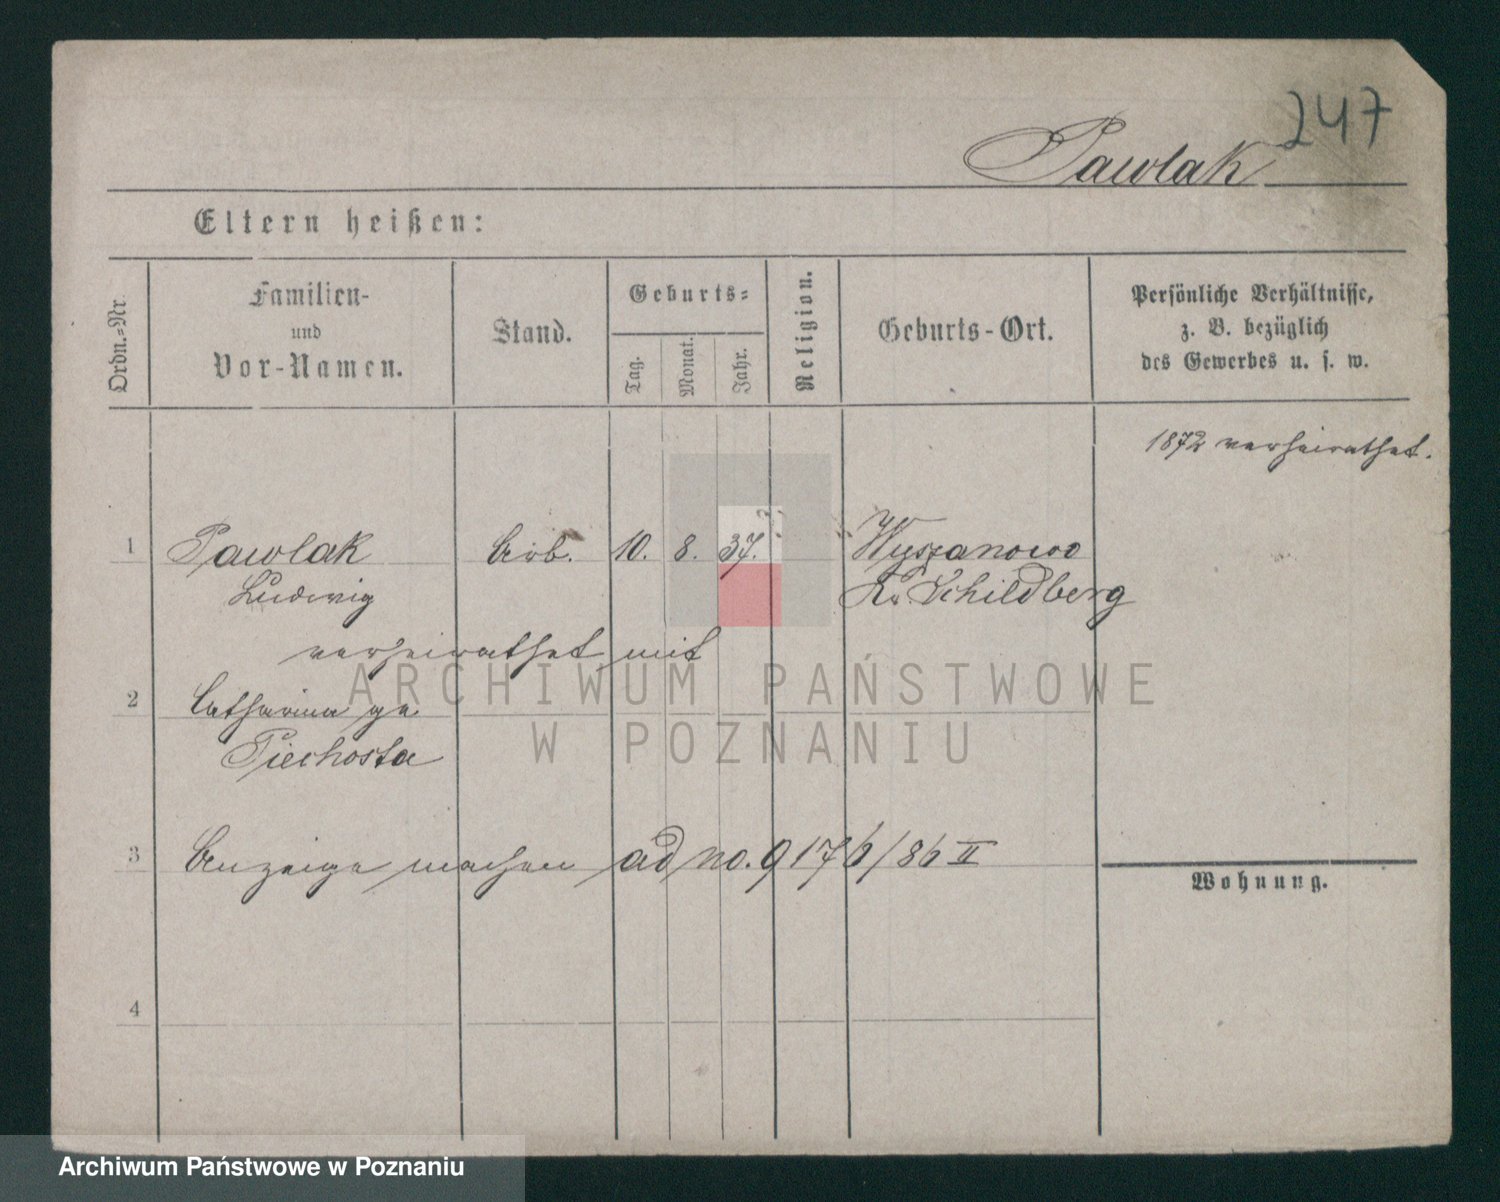 247
Pawlak
Eltern heißen:
Ordn.-Nr.
Familien-
und
Vor-Namen.
Stand.
Geburts-
Tag.
Monat.
Jahr.
Religion.
Geburts-Ort.
Persönliche Verhältnisse,
z. B. bezüglich
des Gewerbes u. s. w.
1872 verheirathet.
1 Pawlak Arb. 10. 8. 37. Wyszanowo
Ludwig Kr. Schildberg
verheirathet mit
2 Catharina ge
Piechosta
3 Anzeige machen ad no. 9176/86 II
Wohnung.
4
ARCHIWUM PAŃSTWOWE
W POZNANIU
Archiwum Państwowe w Poznaniu